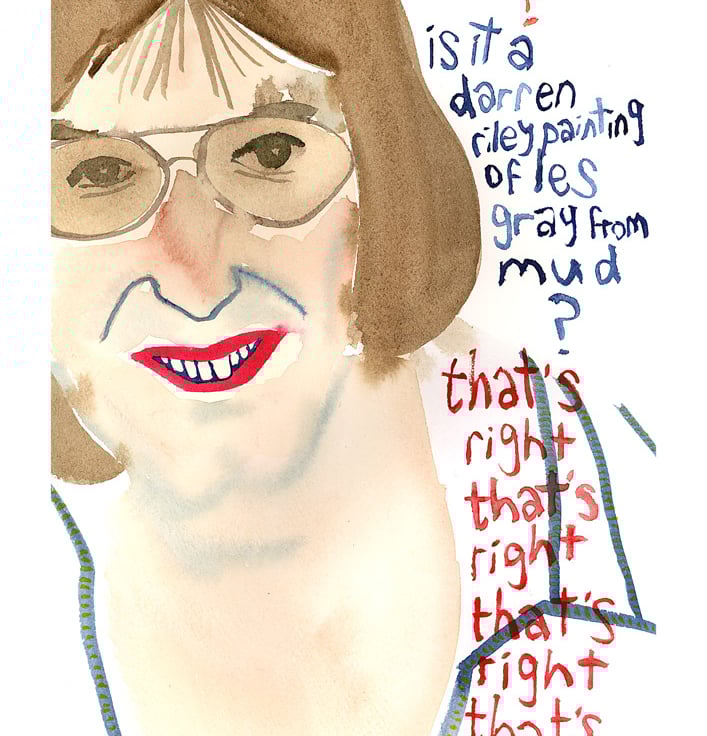 ?
is it a
darren
riley painting
of les
gray from
mud
?
that's
right
that's
right
that's
right
that's